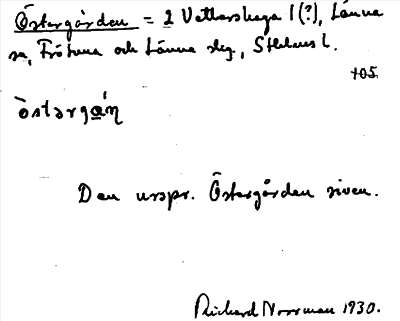 Östergården = 2 Vettershaga 1 (?), Länna
sn, Frötuna och Länna skg., Sthlms l.
405.
òstərgá̱ṇ
Den urspr. Östergården riven.
Richard Norrman 1930.